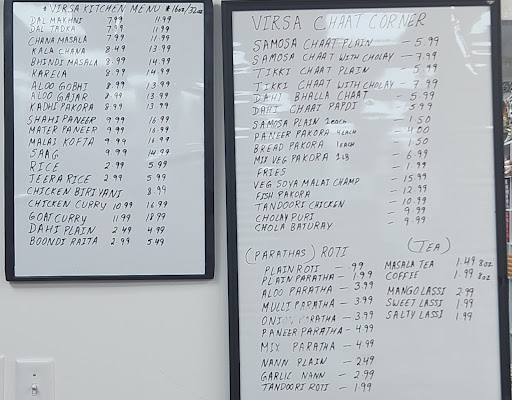 $ VIRSA KITCHEN MENU $ 16oz/32oz
DAL MAKHNI 7.99 11.99
DAL TADKA 7.99 11.99
CHANA MASALA 7.99 11.99
KALA CHANA 8.49 13.99
BHINDI MASALA 8.99 14.99
KARELA 8.99 14.99
ALOO GOBHI 8.99 13.99
ALOO GAJAR 8.99 13.99
KADHI PAKORA 8.99 13.99
SHAHI PANEER 9.99 16.99
MATER PANEER 9.99 16.99
MALAI KOFTA 9.99 16.99
SAAG 9.99 14.99
RICE 2.99 5.99
JEERA RICE 2.99 5.99
CHICKEN BIRIYANI 8.99
CHICKEN CURRY 10.99 16.99
GOAT CURRY 11.99 18.99
DAHI PLAIN 2.49 4.99
BOONDI RAITA 2.99 5.49
VIRSA CHAAT CORNER
SAMOSA CHAAT PLAIN — 5.99
SAMOSA CHAAT WITH CHOLAY — 7.99
TIKKI CHAAT PLAIN — 5.99
TIKKI CHAAT WITH CHOLAY — 7.99
DAHI BHALLA CHAAT — 5.99
DAHI CHAAT PAPDI — 5.99
SAMOSA PLAIN 1each — 1.50
PANEER PAKORA 1each — 4.00
BREAD PAKORA 1each — 1.50
MIX VEG PAKORA 1LB — 6.99
FRIES — 1.99
VEG SOYA MALAI CHAMP — 15.99
FISH PAKORA — 12.99
TANDOORI CHICKEN — 10.99
CHOLAY PURI — 9.99
CHOLA BATURAY — 9.99
(PARATHAS) ROTI
PLAIN ROTI — .99
PLAIN PARATHA — 1.99
ALOO PARATHA — 3.99
MULLI PARATHA — 3.99
ONION PARATHA — 3.99
PANEER PARATHA — 4.99
MIX PARATHA — 4.99
NANN PLAIN — 2.49
GARLIC NANN — 2.99
TANDOORI ROTI — 1.99
(TEA)
MASALA TEA 1.49 8oz
COFFIE 1.99 8oz
MANGO LASSI 2.99
SWEET LASSI 1.99
SALTY LASSI 1.99